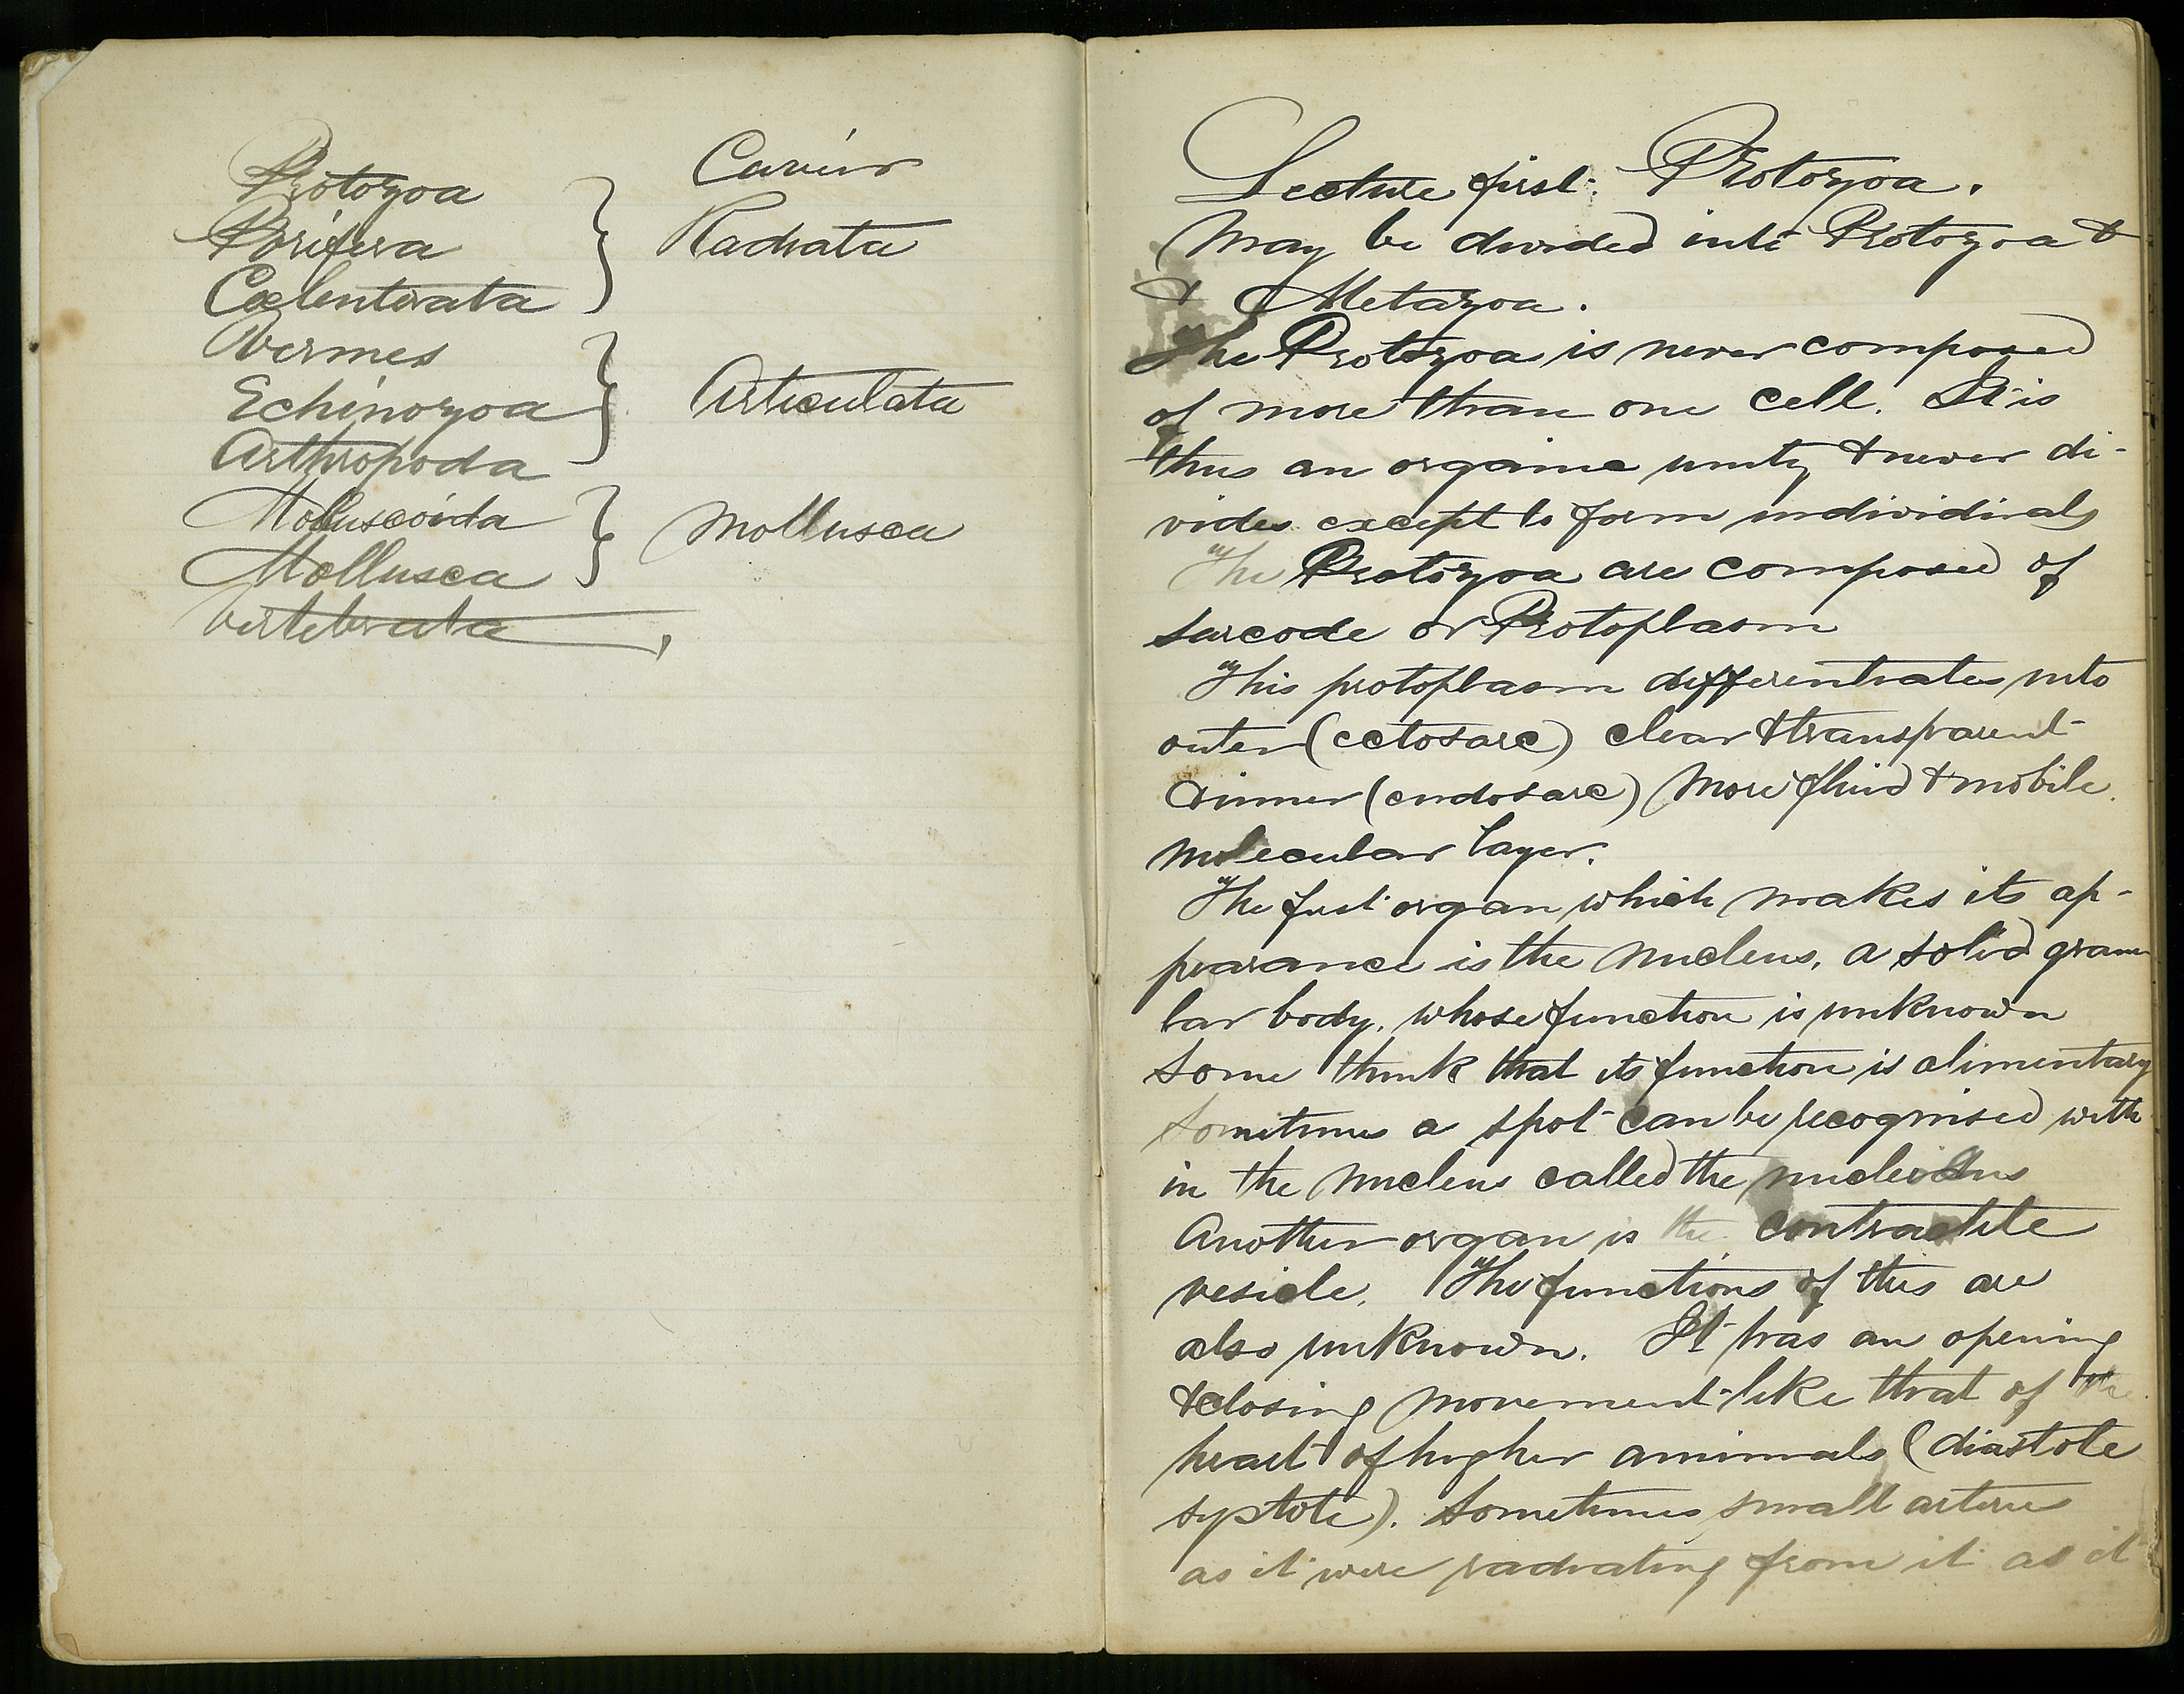 Protozoa
Porifera
Coelenterata
Vermes
Echinozoa
Arthropoda
Molluscoida
Mollusca
Vertebrata
Cuvier
Radiata
Articulata
Mollusca
Lecture first. Protozoa.
May be divided into Protozoa &
& Metazoa.
The Protozoa is never composed
of more than one cell. It is
thus an organic unity & never di-
vides except to form individuals
The Protozoa are composed of
sarcode or Protoplasm
This protoplasm differentiates into
outer (ectosarc) clear & transparent
& inner (endosarc) more fluid & mobile
molecular layer.
The first organ which makes its ap-
pearance is the nucleus, a solid granu
lar body, whose function is unknown
Some think that its function is alimentary
Sometimes a spot can be recognised with
in the nucleus called the nucleolus
Another organ is the contractile
vesicle. The functions of this are
also unknown. It has an opening
& closing movement like that of the
heart of higher animals (diastole
systole). Sometimes small arteries
as it were radiating from it as it